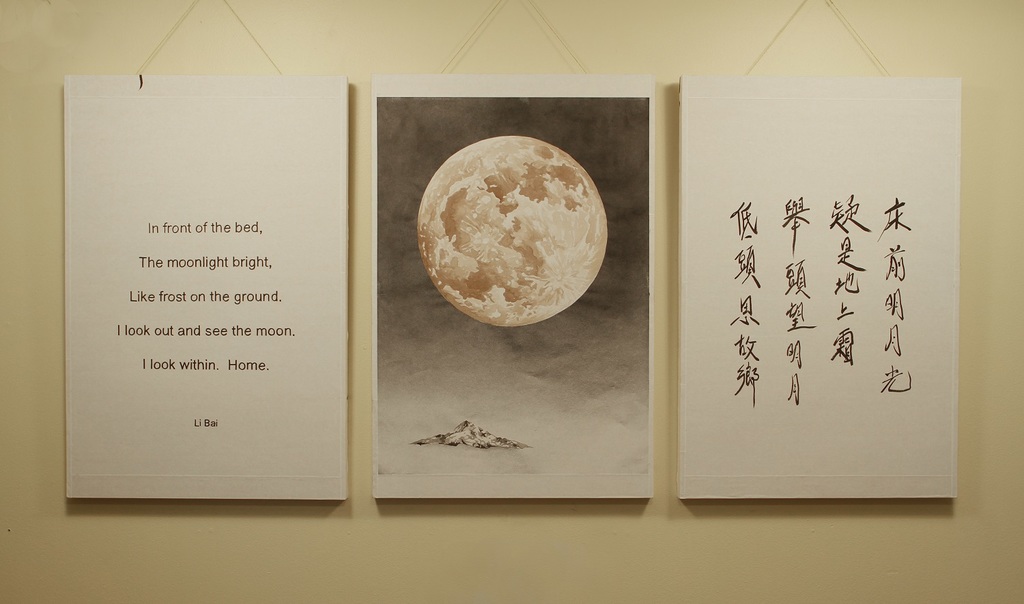 In front of the bed,
The moonlight bright,
Like frost on the ground.
I look out and see the moon.
I look within. Home.
Li Bai
床前明月光
疑是地上霜
舉頭望明月
低頭思故鄉